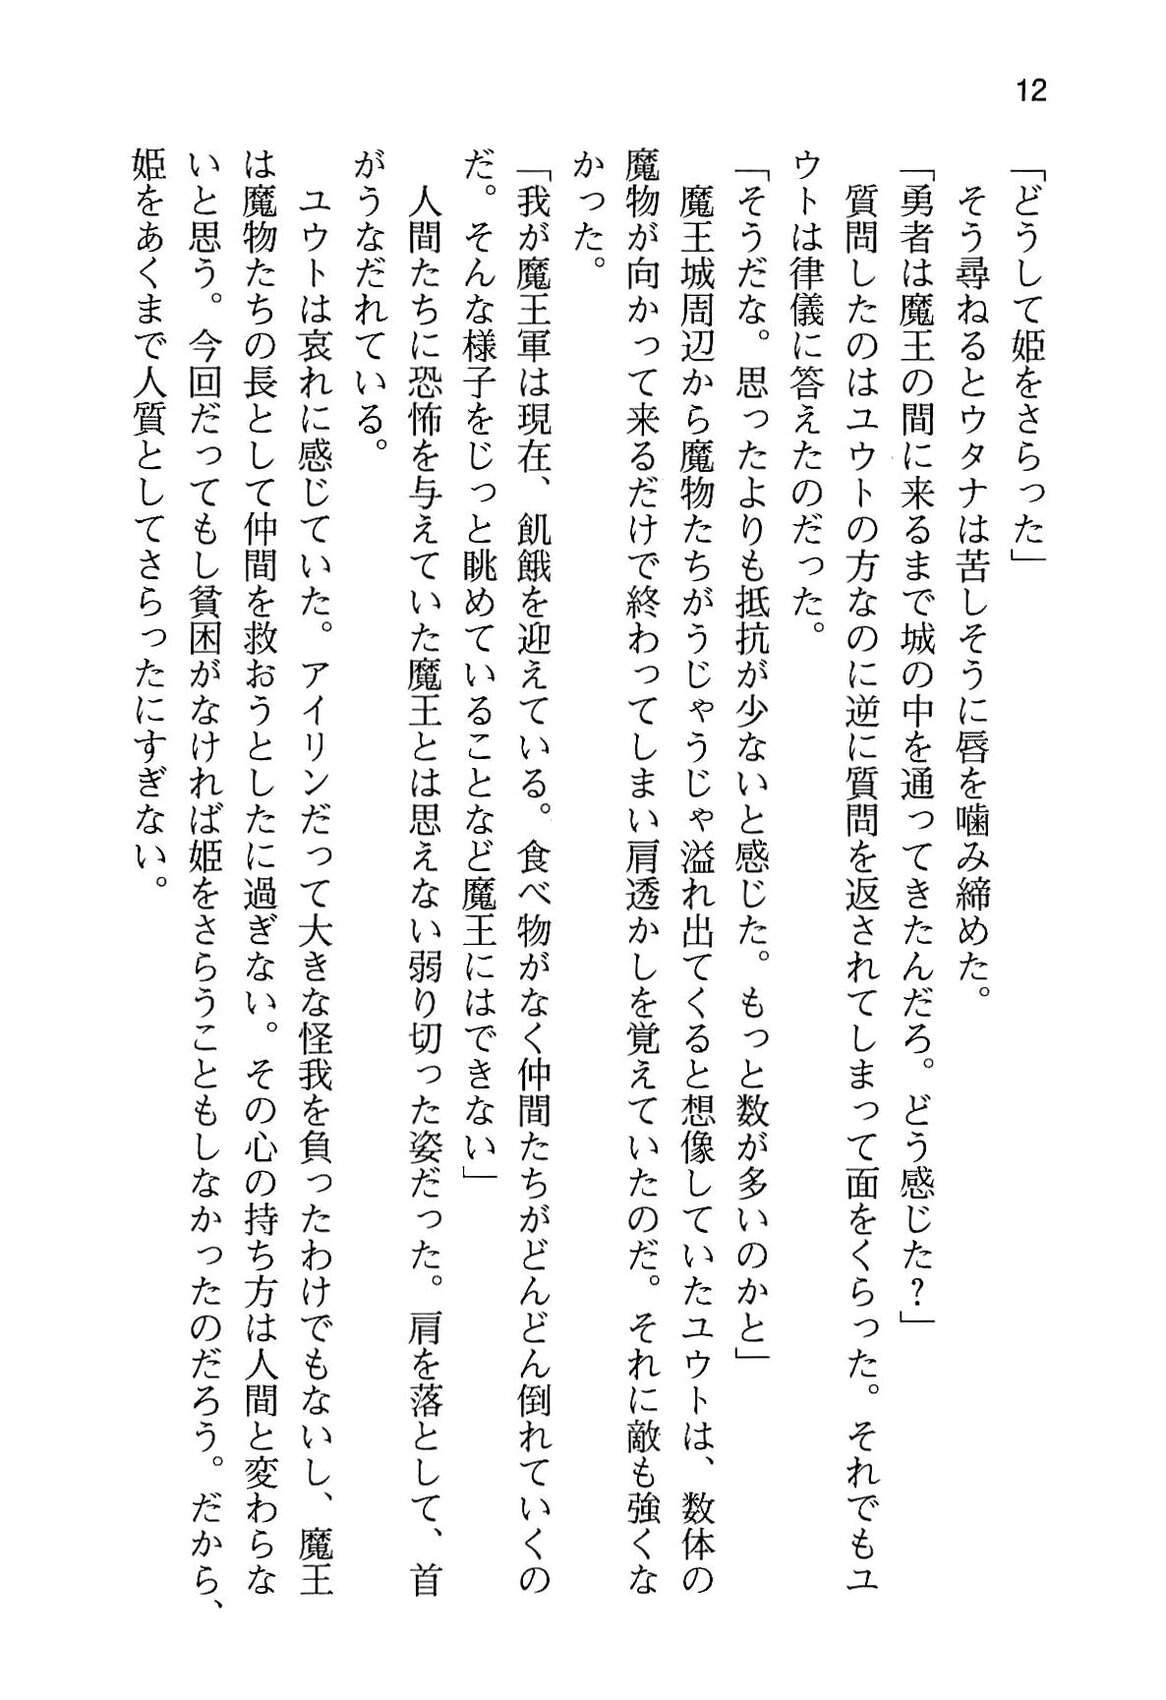 12
「どうして姫をさらった」
そう尋ねるとウタナは苦しそうに唇を噛み締めた。
「勇者は魔王の間に来るまで城の中を通ってきたんだろ。どう感じた？」
質問したのはユウトの方なのに逆に質問を返されてしまって面をくらった。それでもユ
ウトは律儀に答えたのだった。
「そうだな。思ったよりも抵抗が少ないと感じた。もっと数が多いのかと」
魔王城周辺から魔物たちがうじゃうじゃ溢れ出てくると想像していたユウトは、数体の
魔物が向かって来るだけで終わってしまい肩透かしを覚えていたのだ。それに敵も強くな
かった。
「我が魔王軍は現在、飢餓を迎えている。食べ物がなく仲間たちがどんどん倒れていくの
だ。そんな様子をじっと眺めていることなど魔王にはできない」
人間たちに恐怖を与えていた魔王とは思えない弱り切った姿だった。肩を落として、首
がうなだれている。
ユウトは哀れに感じていた。アイリンだって大きな怪我を負ったわけでもないし、魔王
は魔物たちの長として仲間を救おうとしたに過ぎない。その心の持ち方は人間と変わらな
いと思う。今回だってもし貧困がなければ姫をさらうこともしなかったのだろう。だから、
姫をあくまで人質としてさらったにすぎない。